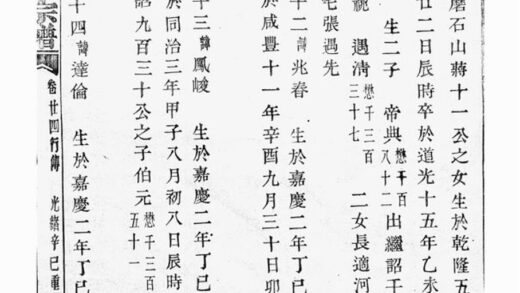 磨石山蔣十一公之女生於乾隆五
廿二日辰時卒於道光十五年乙未
生二子 帝典 懋千百八十二 出繼詔千
遇清 懋千三百三十七 二女長適河
宅張遇先
十二 諱兆春 生於嘉慶二年丁巳
於咸豐十一年辛酉九月三十日卯
十三 諱鳳峻 生於嘉慶二年丁巳
於同治三年甲子八月初八日辰時
詔九百三十公之子伯元 懋千三百五十一
十四 諱達倫 生於嘉慶二年丁巳
宗譜 卷廿四行傳 光緒辛巳重